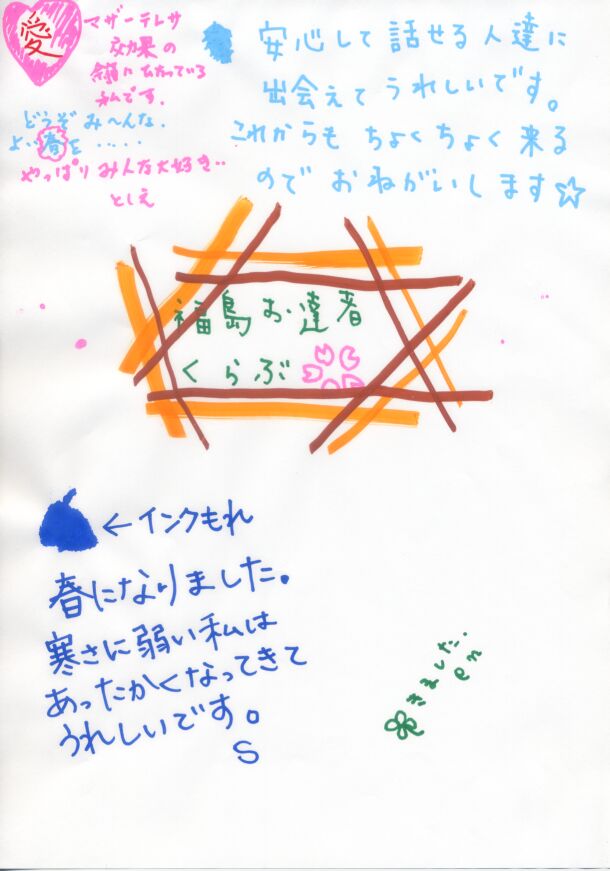 愛
マザーテレサ
効果の
領にひたっている
私です。
どうぞ み〜んな.
よい春を・・・・・
やっぱり みんな大好き‥
としえ
安心して 話せる人達に
出会えて うれしいです。
これからも ちょくちょく来る
ので おねがいします☆
福島お達者
くらぶ
←インクもれ
春になりました。
寒さに弱い私は
あったかくなってきて
うれしいです。
S
きました.
en